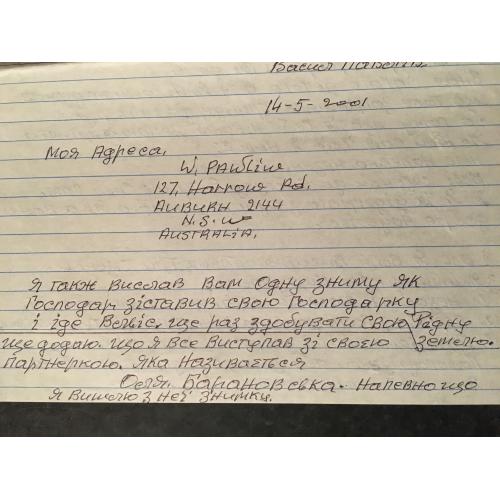 Васил
14-5-2001
Моя Адреса,
W. PAWLiw
127, Harrow Rd,
AUBURN 2144
N.S.W
AUSTRALiA,
Я також вислав Вам одну зниму як
Господар зіставив свою Господарку
і іде ще раз здобувати свою Рідну
ще додаю. що я все виступав зі своєю землю.
Партнеркою. Яка називається
Оеля. Барановська. Напевно що
я вишлю з неї знимку.